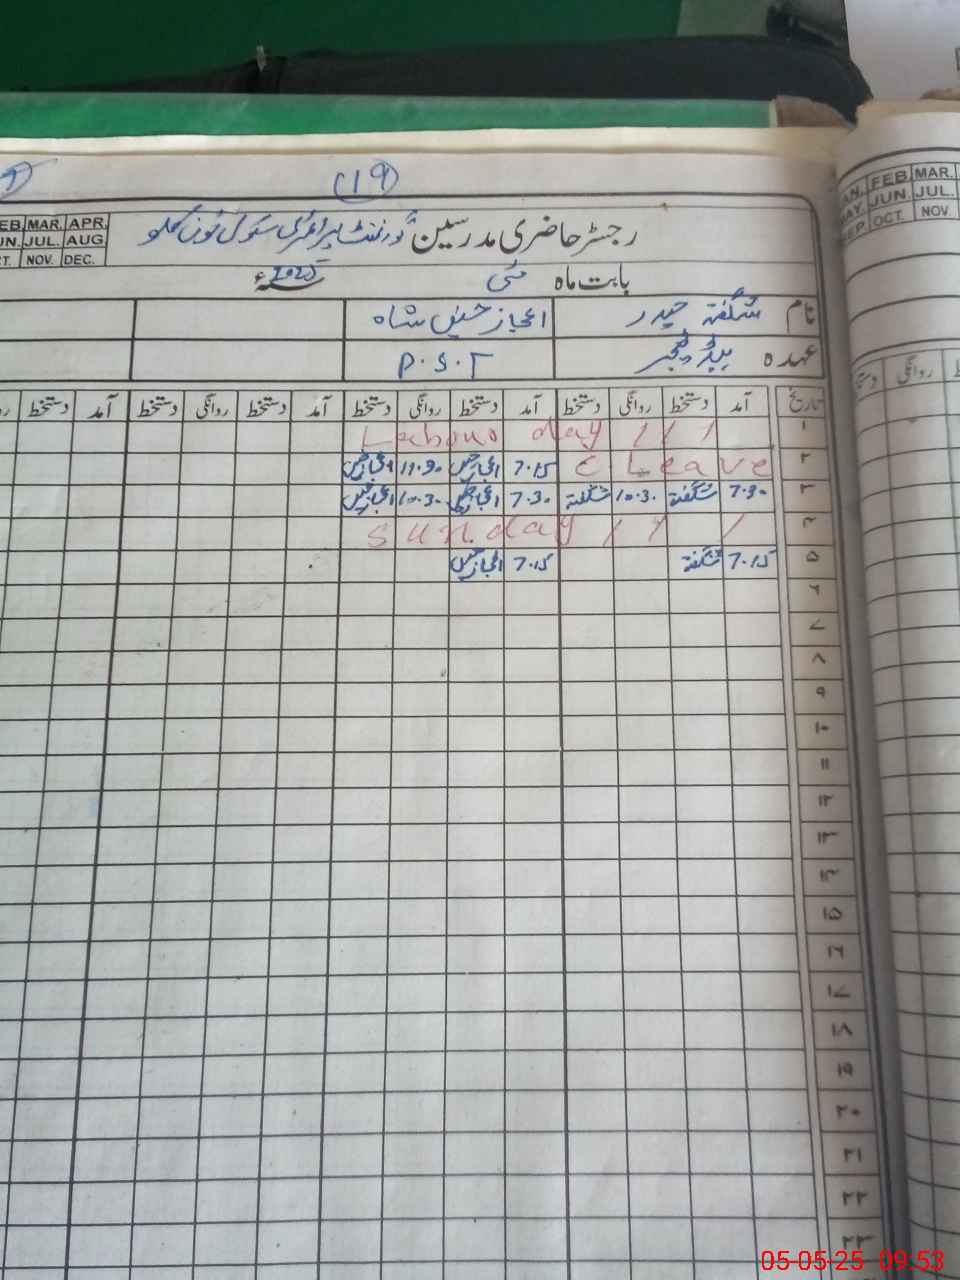 (19)
FEB. MAR. APR.
JUN. JUL. AUG
OCT. NOV. DEC.
رجسٹر حاضری مدرسین گورنمنٹ پرائمری سکول ٹون
بابت ماہ مئی 2025ء
نام شگفتہ حیدر اعجاز حسین شاہ
عہدہ ہیڈ ٹیچر P.S.T
تاریخ آمد دستخط روانگی دستخط آمد دستخط روانگی دستخط آمد دستخط روانگی دستخط آمد دستخط
۱ Labour day / / /
۲ C Leave 7.15 اعجاز حسین 11.30 اعجاز حسین
۳ 7.30 شگفتہ 10.30 شگفتہ 7.30 اعجاز حسین 10.30 اعجاز حسین
۴ Sunday / / /
۵ 7.15 شگفتہ 7.15 اعجاز حسین
۶
۷
۸
۹
۱۰
۱۱
۱۲
۱۳
۱۴
۱۵
۱۶
۱۷
۱۸
۱۹
۲۰
۲۱
۲۲
۲۳
JAN. FEB. MAR.
MAY. JUN. JUL.
SEP. OCT. NOV.
روانگی
05-05-25 09:53